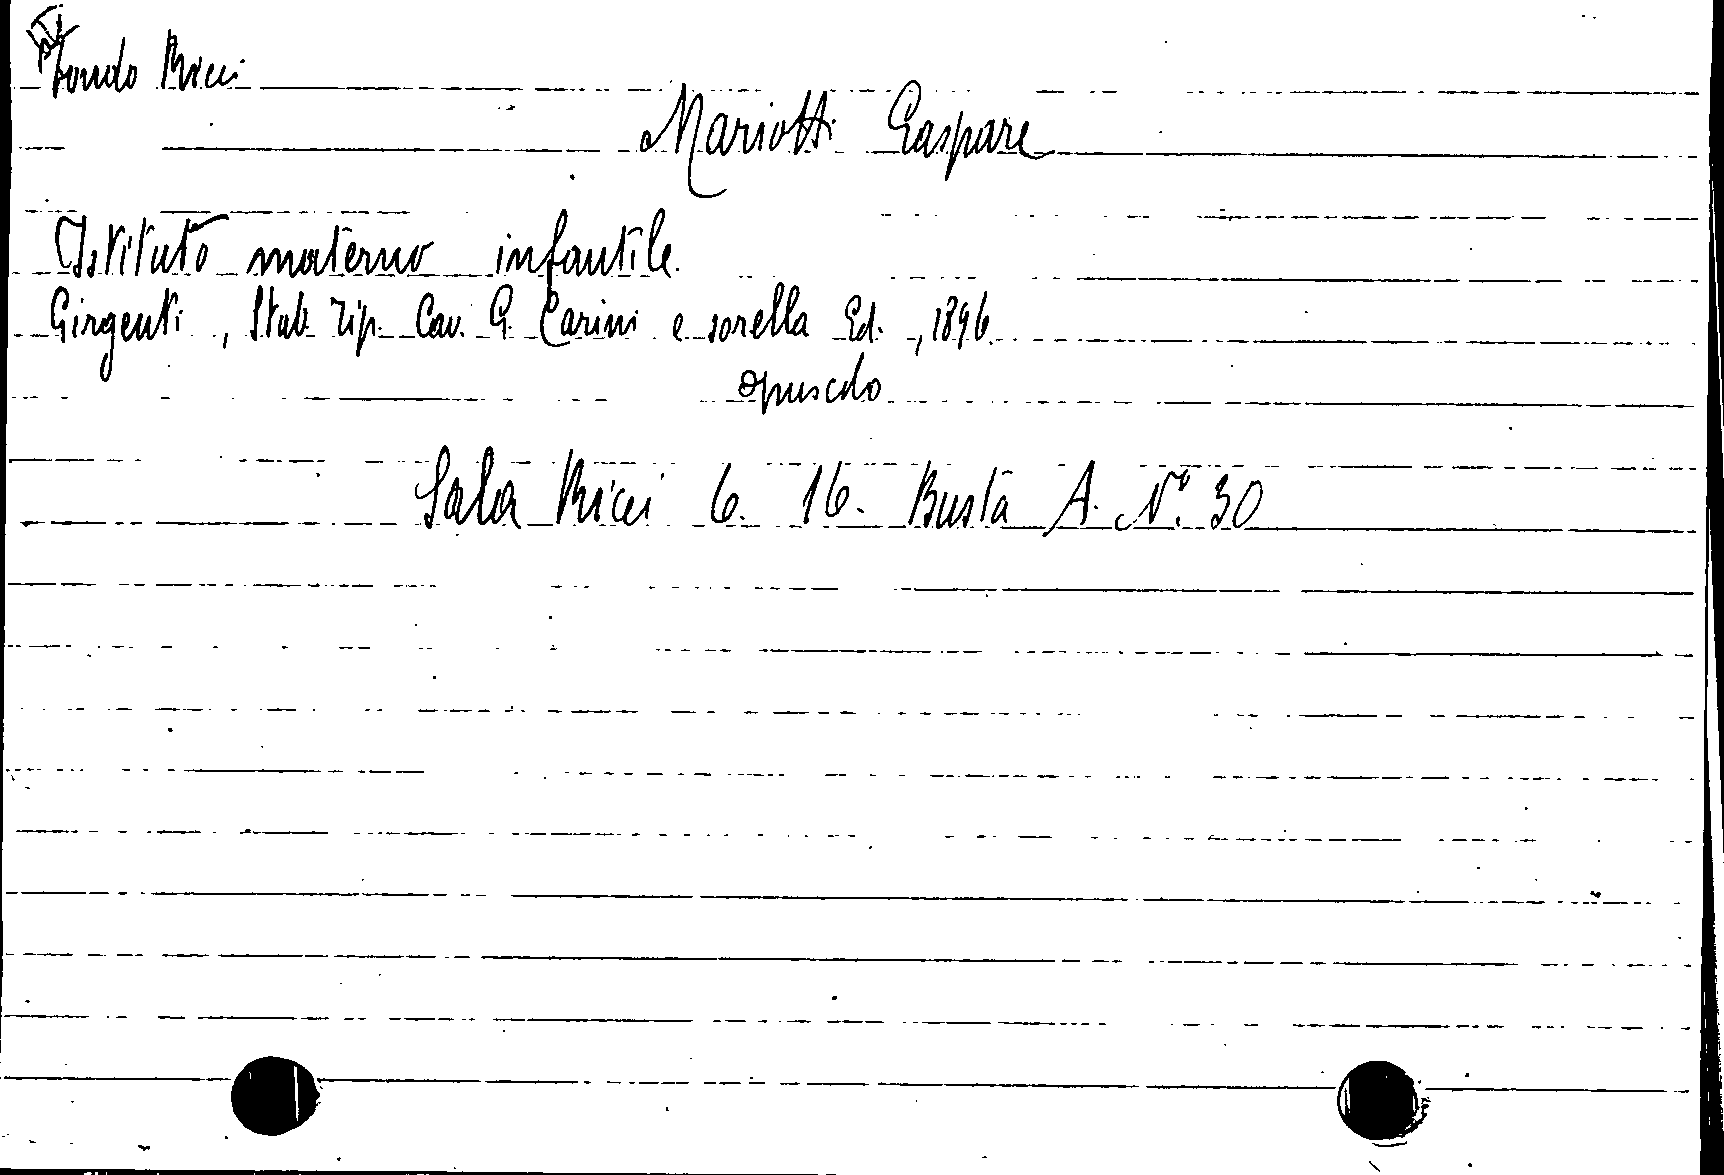 Fondo Ricci
Mariotti Gaspare
Istituto materno infantile.
Girgenti, Stab. Tip. Cav. G. Carini e sorella Ed., 1896
opuscolo
Sala Ricci 6. 16. Busta A. N.° 30